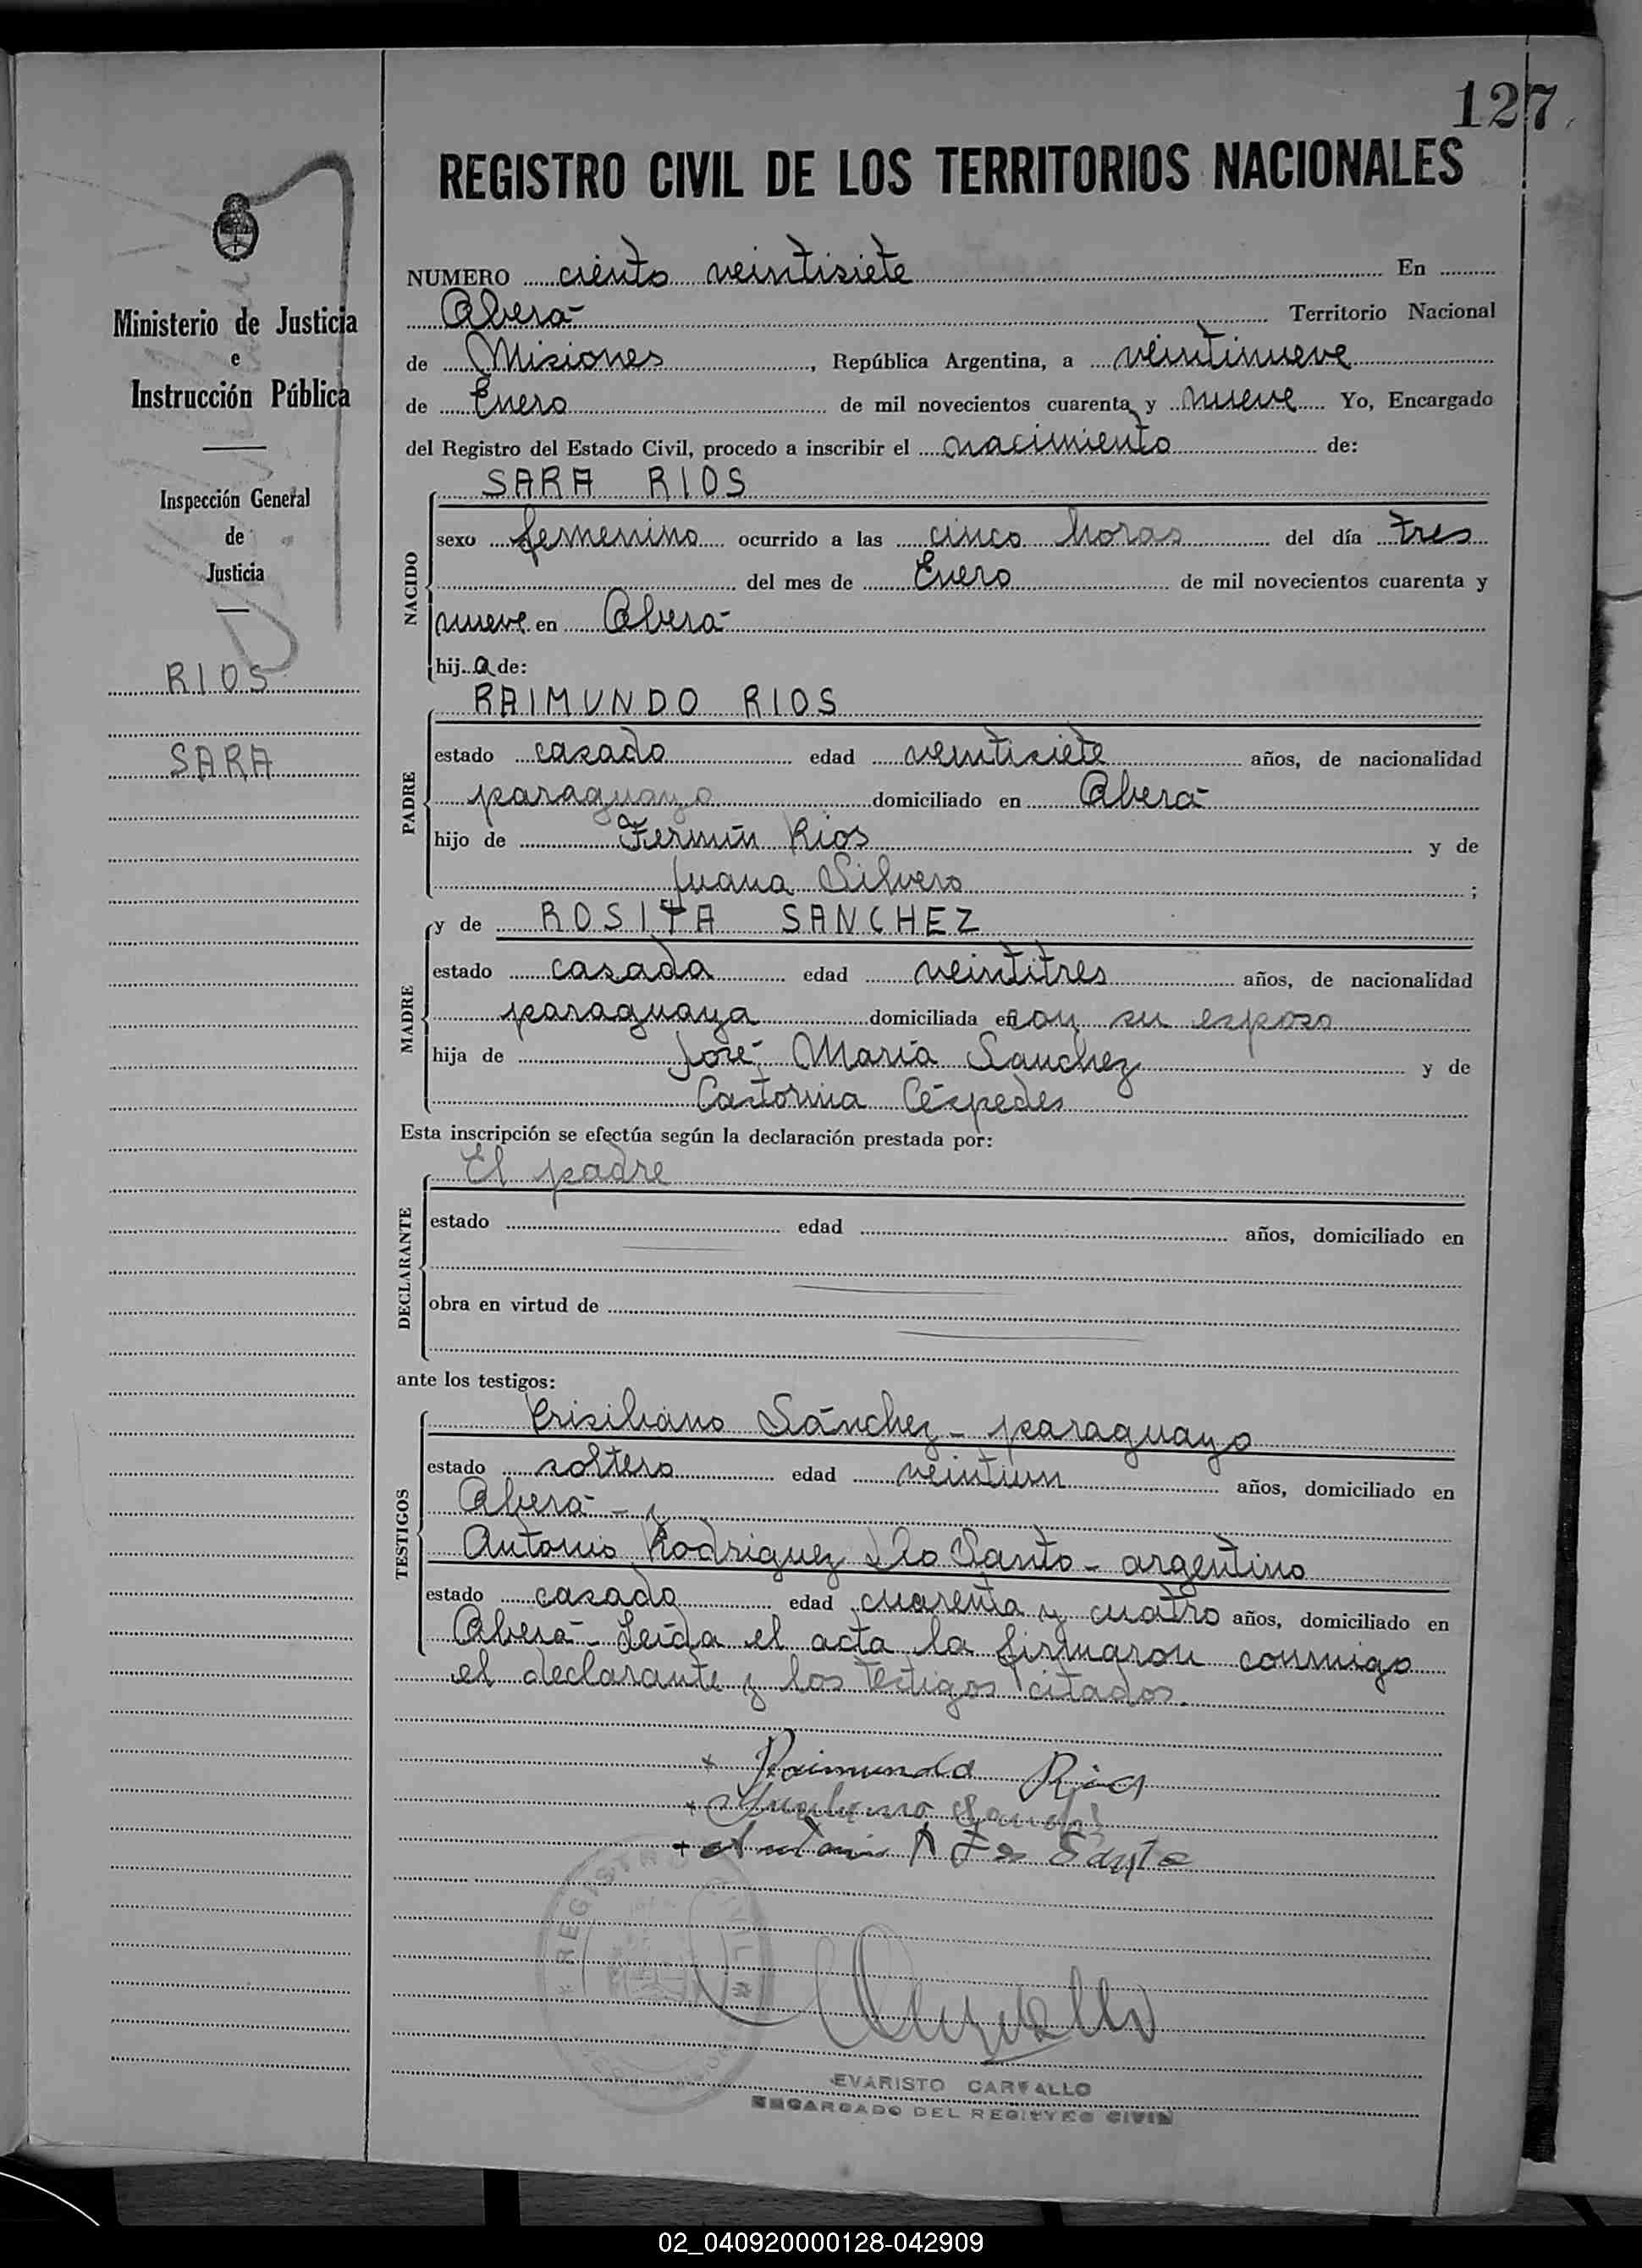 127
REGISTRO CIVIL DE LOS TERRITORIOS NACIONALES
Ministerio de Justicia
e
Instrucción Pública
Inspección General
de
Justicia
RIOS
SARA
NUMERO ciento veintisiete En
Oberá Territorio Nacional
de Misiones, República Argentina, a veintinueve
de Enero de mil novecientos cuarenta y nueve Yo, Encargado
del Registro del Estado Civil, procedo a inscribir el nacimiento de:
SARA RIOS
NACIDO
sexo femenino ocurrido a las cinco horas del día tres
del mes de Enero de mil novecientos cuarenta y
nueve en Oberá
hija de:
RAIMUNDO RIOS
PADRE
estado casado edad veintisiete años, de nacionalidad
paraguayo domiciliado en Oberá
hijo de Fermín Rios y de
Juana Silvero ;
y de ROSITA SANCHEZ
MADRE
estado casada edad veintitres años, de nacionalidad
paraguaya domiciliada en con su esposo
hija de José María Sanchez y de
Castorina Céspedes
Esta inscripción se efectúa según la declaración prestada por:
El padre
DECLARANTE
estado edad años, domiciliado en
obra en virtud de
ante los testigos:
Sánchez - paraguayo
TESTIGOS
estado soltero edad veintiun años, domiciliado en
Oberá - y
Antonio Rodriguez Do Santo - argentino
estado casado edad cuarenta y cuatro años, domiciliado en
Oberá - Leída el acta la firmaron conmigo
el declarante y los testigos citados.
Raimundo Rios
Antonio
REGISTRO CIVIL
EVARISTO CARVALLO
ENCARGADO DEL REGISTRO CIVIL
02_040920000128-042909